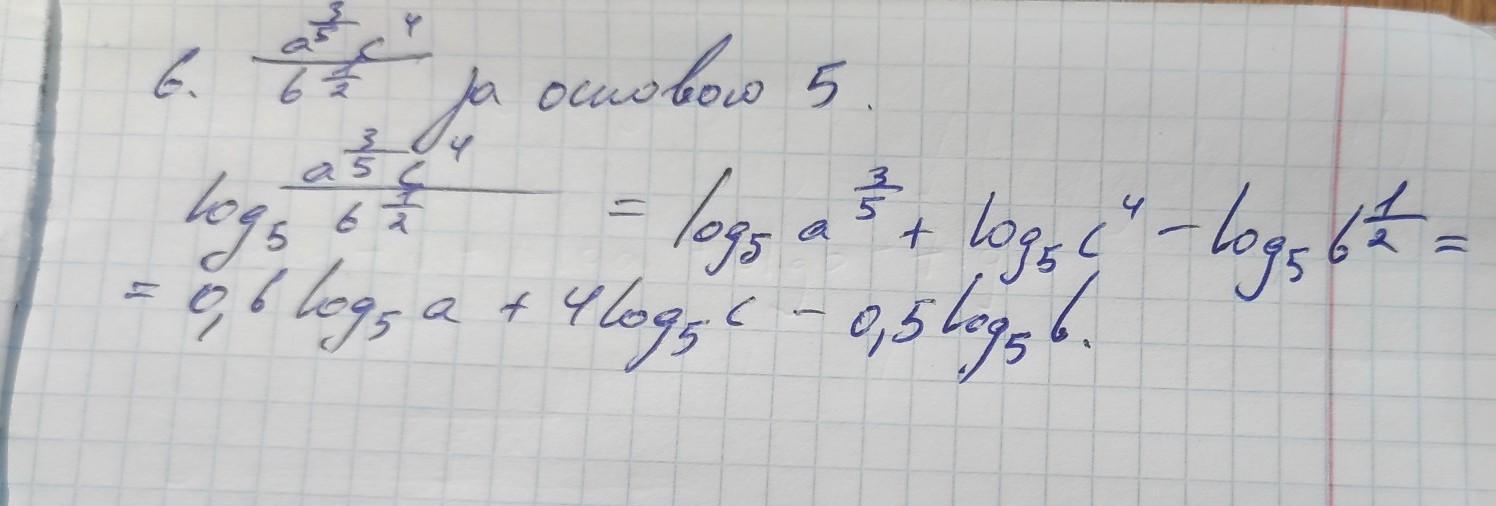 6. a^{3/5} c^4 / b^{1/2} за основою 5.
log_5 a^{3/5} c^4 / b^{1/2} = log_5 a^{3/5} + log_5 c^4 - log_5 b^{1/2} =
= 0,6 log_5 a + 4 log_5 c - 0,5 log_5 b.